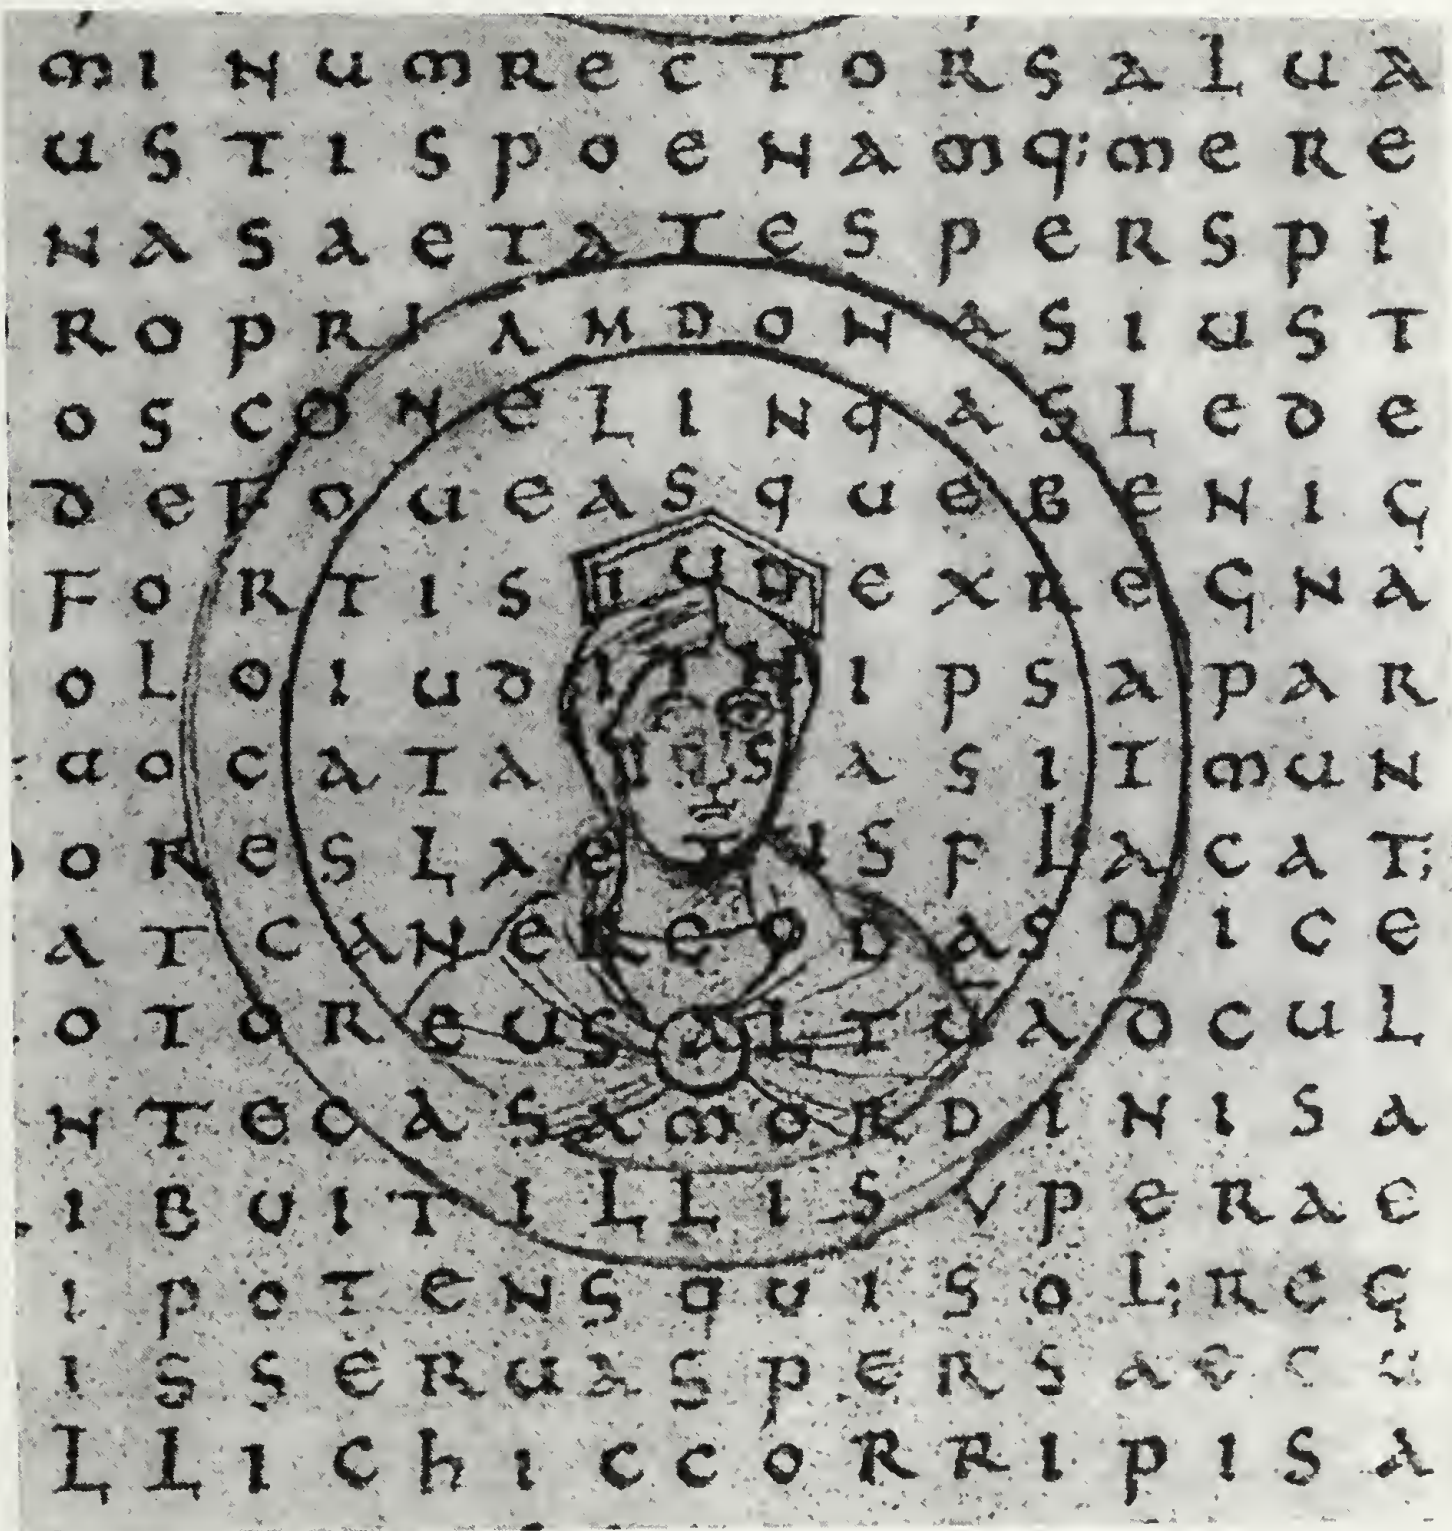 MINUMRECTORSALUA
USTISPOENAMQ;MERE
NASAETATESPERSPI
ROPRIAMDONASIUST
OSCONELINQASLEDE
DEFOUEASQUEBENIG
FORTISIUDEXREGNA
OLOIUD IPSAPAR
AOCATA ASITMUN
ORESLAE SPLACAT;
ATCANEREODASDICE
OTOREUSALTUADCUL
NTEOASAMORDINISA
IBUITILLISVPERAE
IPOTENSQUISOL;REG
ISSERUASPERSAECU
LLICHICCORRIPISA